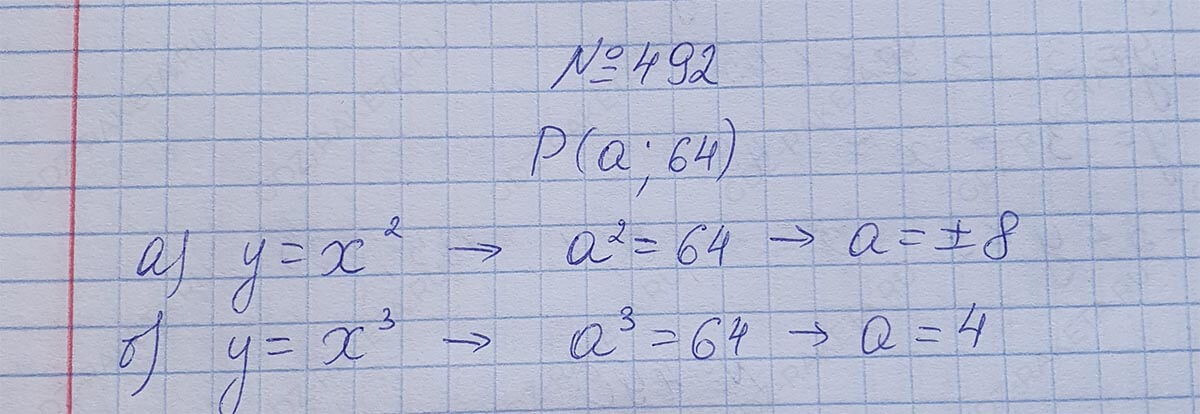 №492
P(a; 64)
а) y = x² → a² = 64 → a = ±8
б) y = x³ → a³ = 64 → a = 4